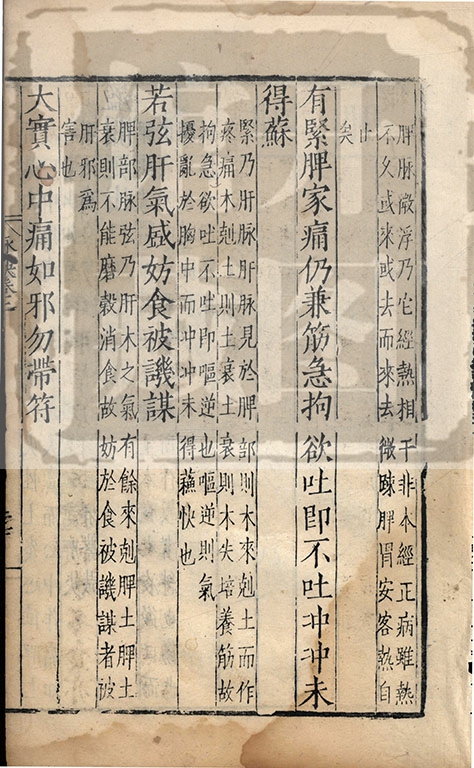 脾脉微浮乃它經熱相干非本經正病雖熱
不久或来或去而来去微踈脾胃安客熱自
止
矣
有緊脾家痛仍兼筋急拘欲吐即不吐冲冲未
得蘇
緊乃肝脉肝脉見於脾部則木來剋土而作
疼痛木剋土則土衰土衰則木失培養筋故
拘急欲吐不吐即嘔逆也嘔逆則氣
擾亂於胸中而冲冲未得蘓快也
若弦肝氣盛妨食被譏謀
脾部脉弦乃肝木之氣有餘來剋脾土脾土
衰則不能磨穀消食故妨於食被譏謀者被
肝邪爲
害也
大實心中痛如邪勿帶符